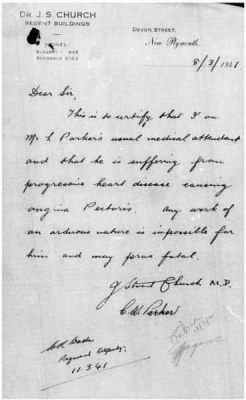 DR. J. S. CHURCH
REGENT BUILDINGS
DEVON STREET,
New Plymouth.
SURGERY - 845
RESIDENCE 2152
8/3/1941
Dear Sir,
This is to certify that I am
Mr L Parker's usual medical attendant
and that he is suffering from
progressive heart disease causing
angina Pectoris. Any work of
an arduous nature is impossible for
him and may prove fatal.
J Church M.D.
C W Parker
Deputy
11.3.41